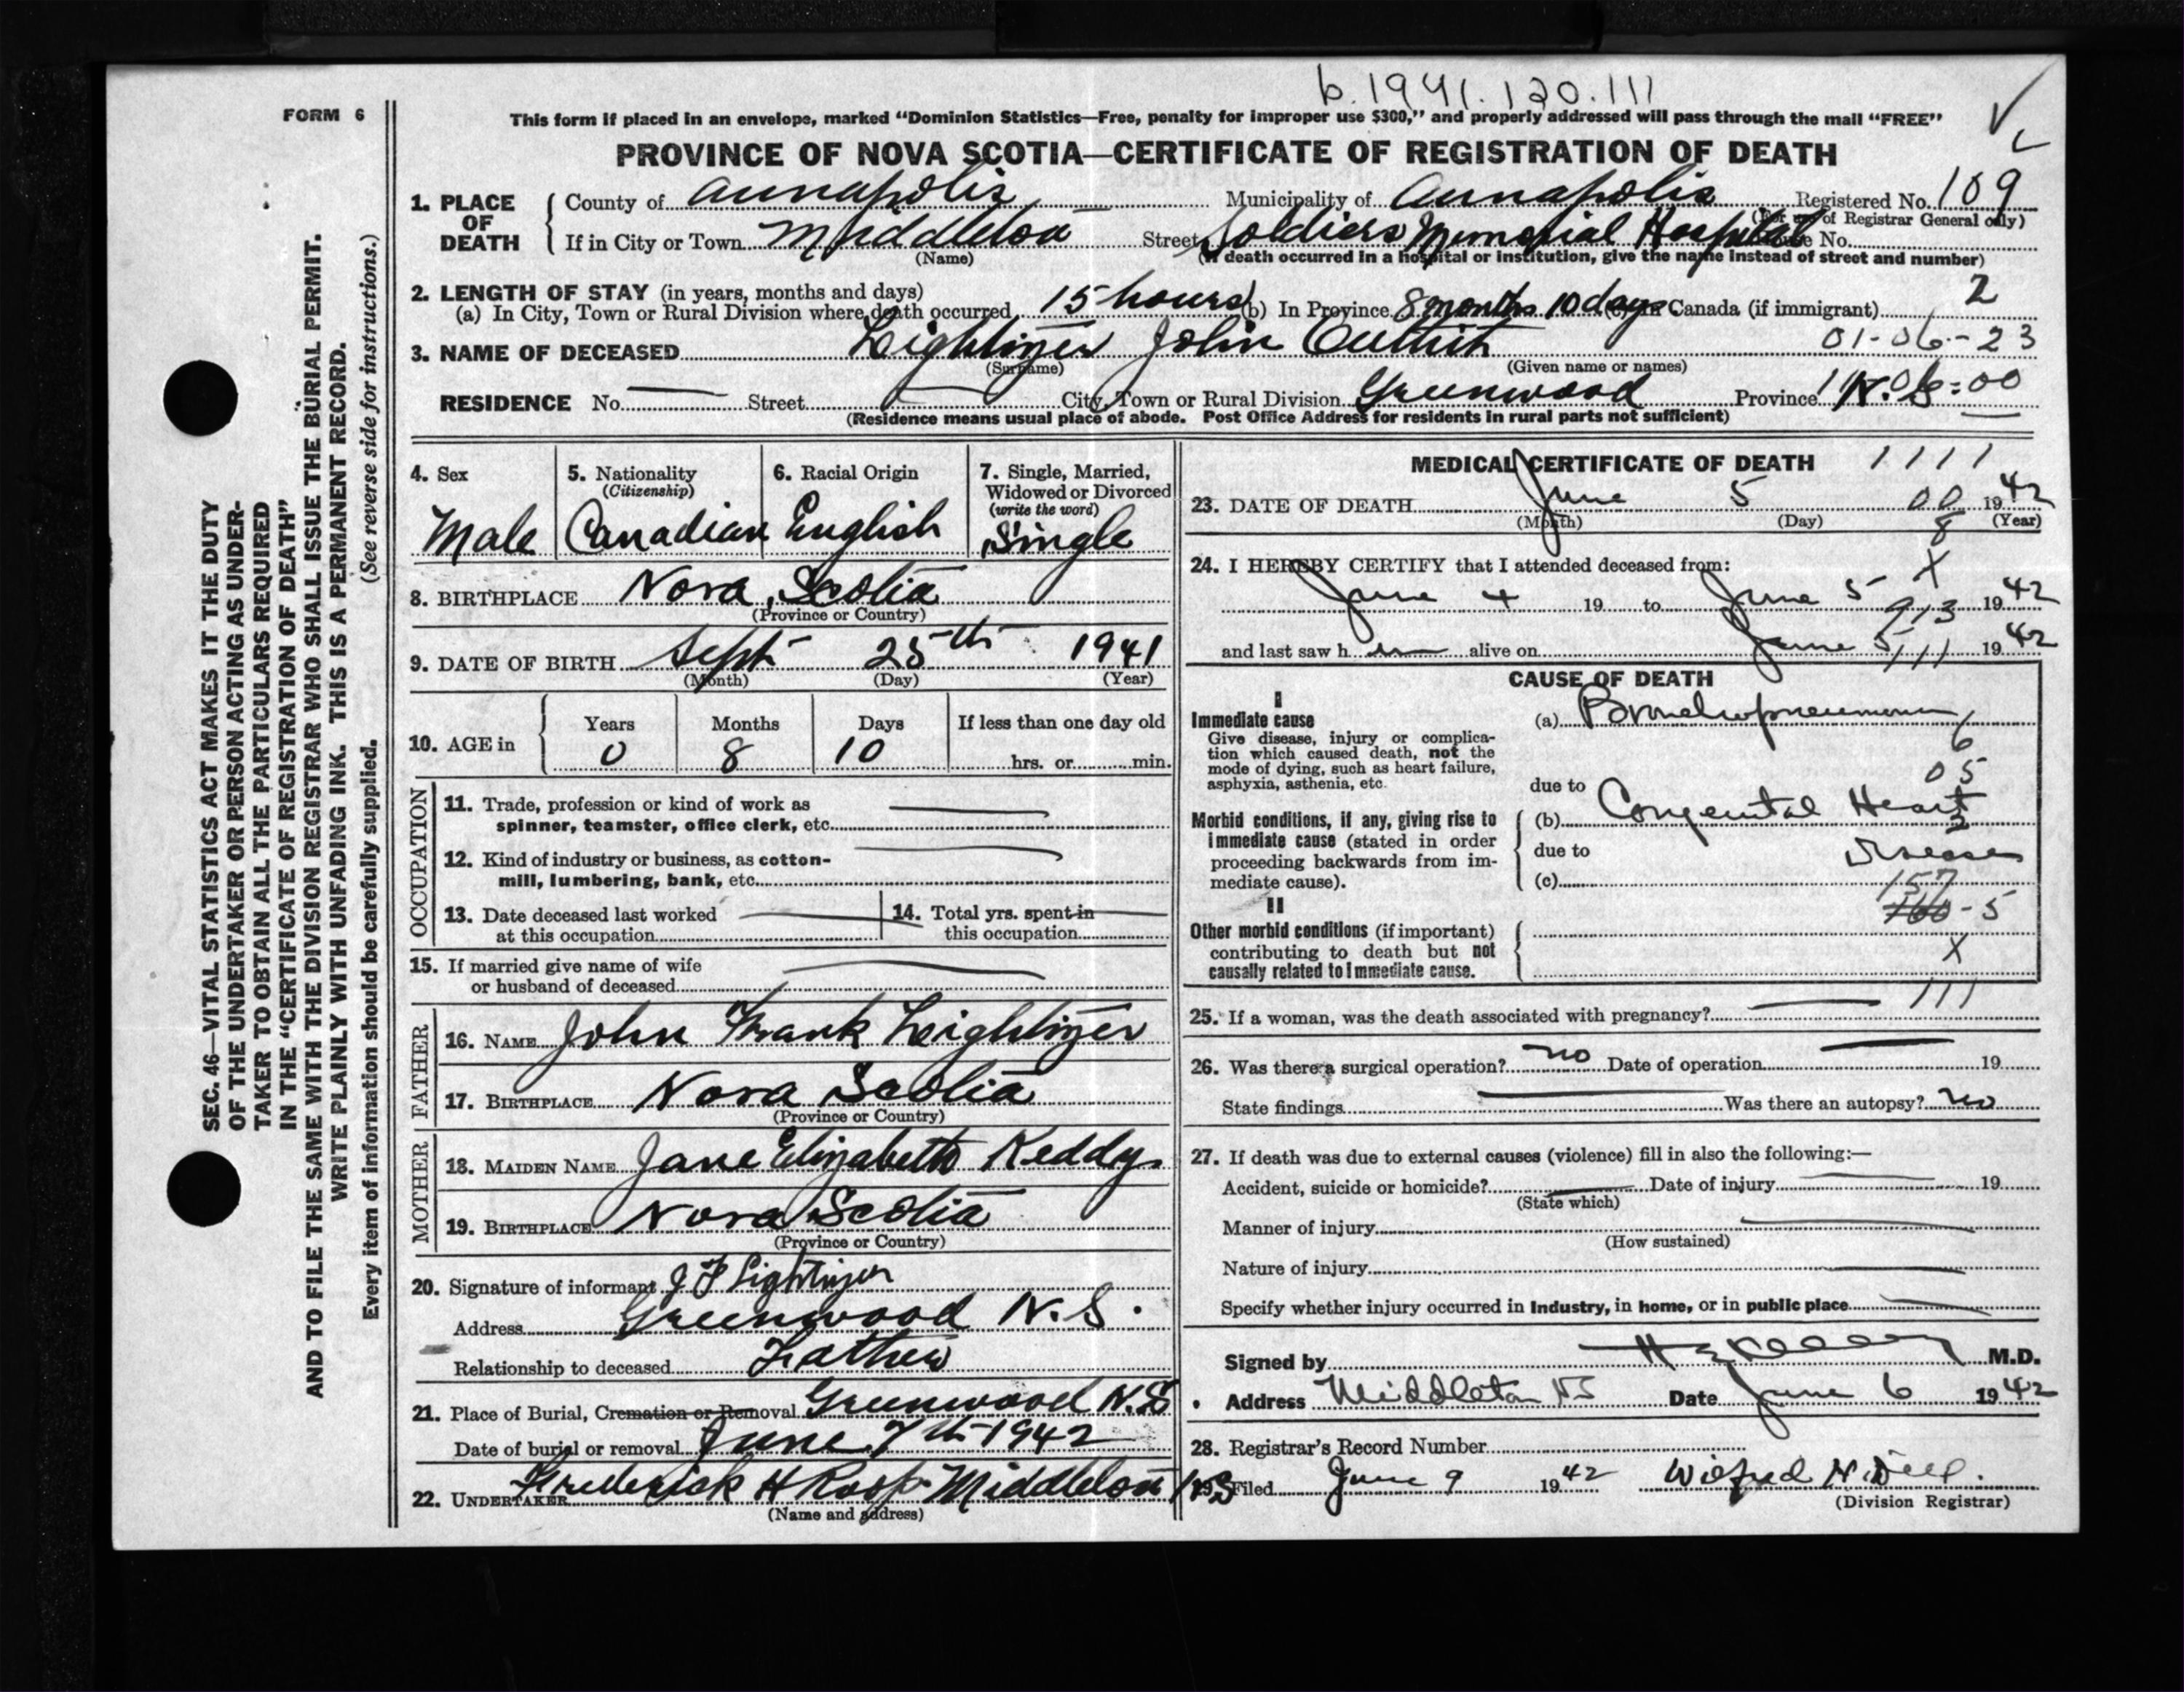 b. 1941. 120. 111
FORM 6
This form if placed in an envelope, marked "Dominion Statistics—Free, penalty for improper use $300," and properly addressed will pass through the mail "FREE"
PROVINCE OF NOVA SCOTIA—CERTIFICATE OF REGISTRATION OF DEATH
1. PLACE OF DEATH County of Annapolis Municipality of Annapolis Registered No. 109
(For use of Registrar General only)
If in City or Town Middleton Street Soldiers Memorial Hospital House No.
(Name) (If death occurred in a hospital or institution, give the name instead of street and number)
2. LENGTH OF STAY (in years, months and days)
(a) In City, Town or Rural Division where death occurred 15 hours (b) In Province 8 months 10 days (c) In Canada (if immigrant) 2
3. NAME OF DECEASED Leightizer John 01-06-23
(Surname) (Given name or names)
RESIDENCE No. Street City, Town or Rural Division Greenwood Province N.S. 11-06-00
(Residence means usual place of abode. Post Office Address for residents in rural parts not sufficient)
4. Sex Male
5. Nationality (Citizenship) Canadian
6. Racial Origin English
7. Single, Married, Widowed or Divorced (write the word) Single
8. BIRTHPLACE Nova Scotia
(Province or Country)
9. DATE OF BIRTH Sept 25th 1941
(Month) (Day) (Year)
10. AGE in Years 0 Months 8 Days 10 If less than one day old
hrs. or min.
OCCUPATION
11. Trade, profession or kind of work as
spinner, teamster, office clerk, etc.
12. Kind of industry or business, as cotton-
mill, lumbering, bank, etc.
13. Date deceased last worked
at this occupation
14. Total yrs. spent in
this occupation
15. If married give name of wife
or husband of deceased
FATHER
16. NAME John Frank Leightizer
17. BIRTHPLACE Nova Scotia
(Province or Country)
MOTHER
18. MAIDEN NAME Jane Elizabeth Keddy
19. BIRTHPLACE Nova Scotia
(Province or Country)
20. Signature of informant J F Lightizer
Address Greenwood N.S.
Relationship to deceased Father
21. Place of Burial, Cremation or Removal Greenwood N.S
Date of burial or removal June 7th 1942
22. UNDERTAKER Frederick H Roop Middleton N.S
(Name and address)
MEDICAL CERTIFICATE OF DEATH 1111
23. DATE OF DEATH June 5 00 1942
(Month) (Day) (Year)
8
24. I HEREBY CERTIFY that I attended deceased from: X
June 4 19 to June 5 1942
913
and last saw him alive on June 5 1942
111
CAUSE OF DEATH
I
Immediate cause
Give disease, injury or complica-
tion which caused death, not the
mode of dying, such as heart failure,
asphyxia, asthenia, etc.
(a) Bronchopneumonia
6
05
due to
Morbid conditions, if any, giving rise to
immediate cause (stated in order
proceeding backwards from im-
mediate cause).
(b) Congenital Heart
due to Disease
(c)
157
160-5
II
Other morbid conditions (if important)
contributing to death but not
causally related to immediate cause.
X
111
25. If a woman, was the death associated with pregnancy?
26. Was there a surgical operation? no Date of operation 19
State findings Was there an autopsy? no
27. If death was due to external causes (violence) fill in also the following:—
Accident, suicide or homicide? Date of injury 19
(State which)
Manner of injury
(How sustained)
Nature of injury
Specify whether injury occurred in industry, in home, or in public place
Signed by M.D.
Address Middleton NS Date June 6 1942
28. Registrar's Record Number
29. Filed June 9 1942 Wilfred
(Division Registrar)
SEC. 46—VITAL STATISTICS ACT MAKES IT THE DUTY
OF THE UNDERTAKER OR PERSON ACTING AS UNDER-
TAKER TO OBTAIN ALL THE PARTICULARS REQUIRED
IN THE "CERTIFICATE OF REGISTRATION OF DEATH"
AND TO FILE THE SAME WITH THE DIVISION REGISTRAR WHO SHALL ISSUE THE BURIAL PERMIT.
WRITE PLAINLY WITH UNFADING INK. THIS IS A PERMANENT RECORD.
Every item of information should be carefully supplied. (See reverse side for instructions.)